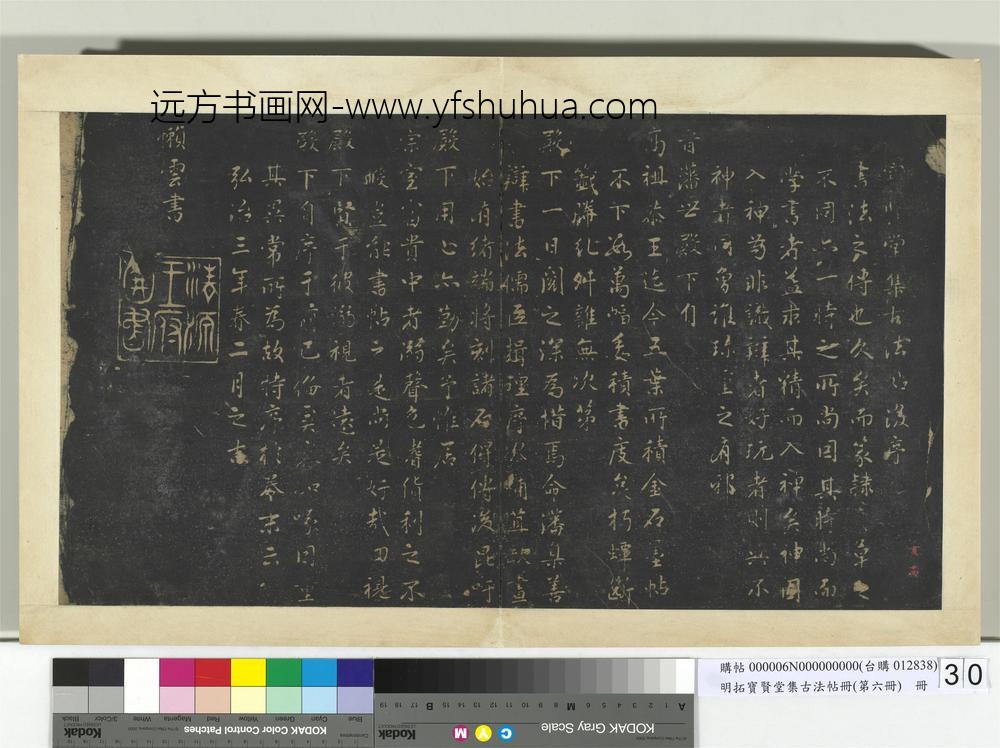 远方书画网-www.yfshuhua.com
集古法帖後序
書法之傳也久矣而篆隸草之
不同亦一時之所尚因其時尚而
學書者益求其精而入神矣神固
入神焉非識辨者好玩者則與不
神者同曷誰珍重之有哪
晉藩世殿下自
高祖恭王迄今五葉所積金石墨帖
不下數萬幅委積書度然朽蟫斷
籤譌紀舛雜無次第
殿下一日閱之深為惜焉命藩臬善
書法儒臣緝理序次補
始有緒端將刻諸石傳後昆吁
殿下用心亦勤矣嘗惟居
宗室富貴中者溺聲色耆貨利之不
暇豈能書帖之是尚是好哉
殿下賢于彼溺視者遠矣
殿下自序于前已備矣
其異常所為故特序於卷末云
弘治三年春二月之吉
懶雲書
法源
王府
圖書
購帖 000006N000000000(台購 012838)
明拓寶賢堂集古法帖冊(第六冊) 冊
30
KODAK Color Control Patches
Kodak
Blue Cyan Green Yellow Red Magenta White 3/Color Black
KODAK Gray Scale
Kodak
C Y M
A 1 2 3 4 5 6 M 8 9 10 11 12 13 14 15 B 17 18 19